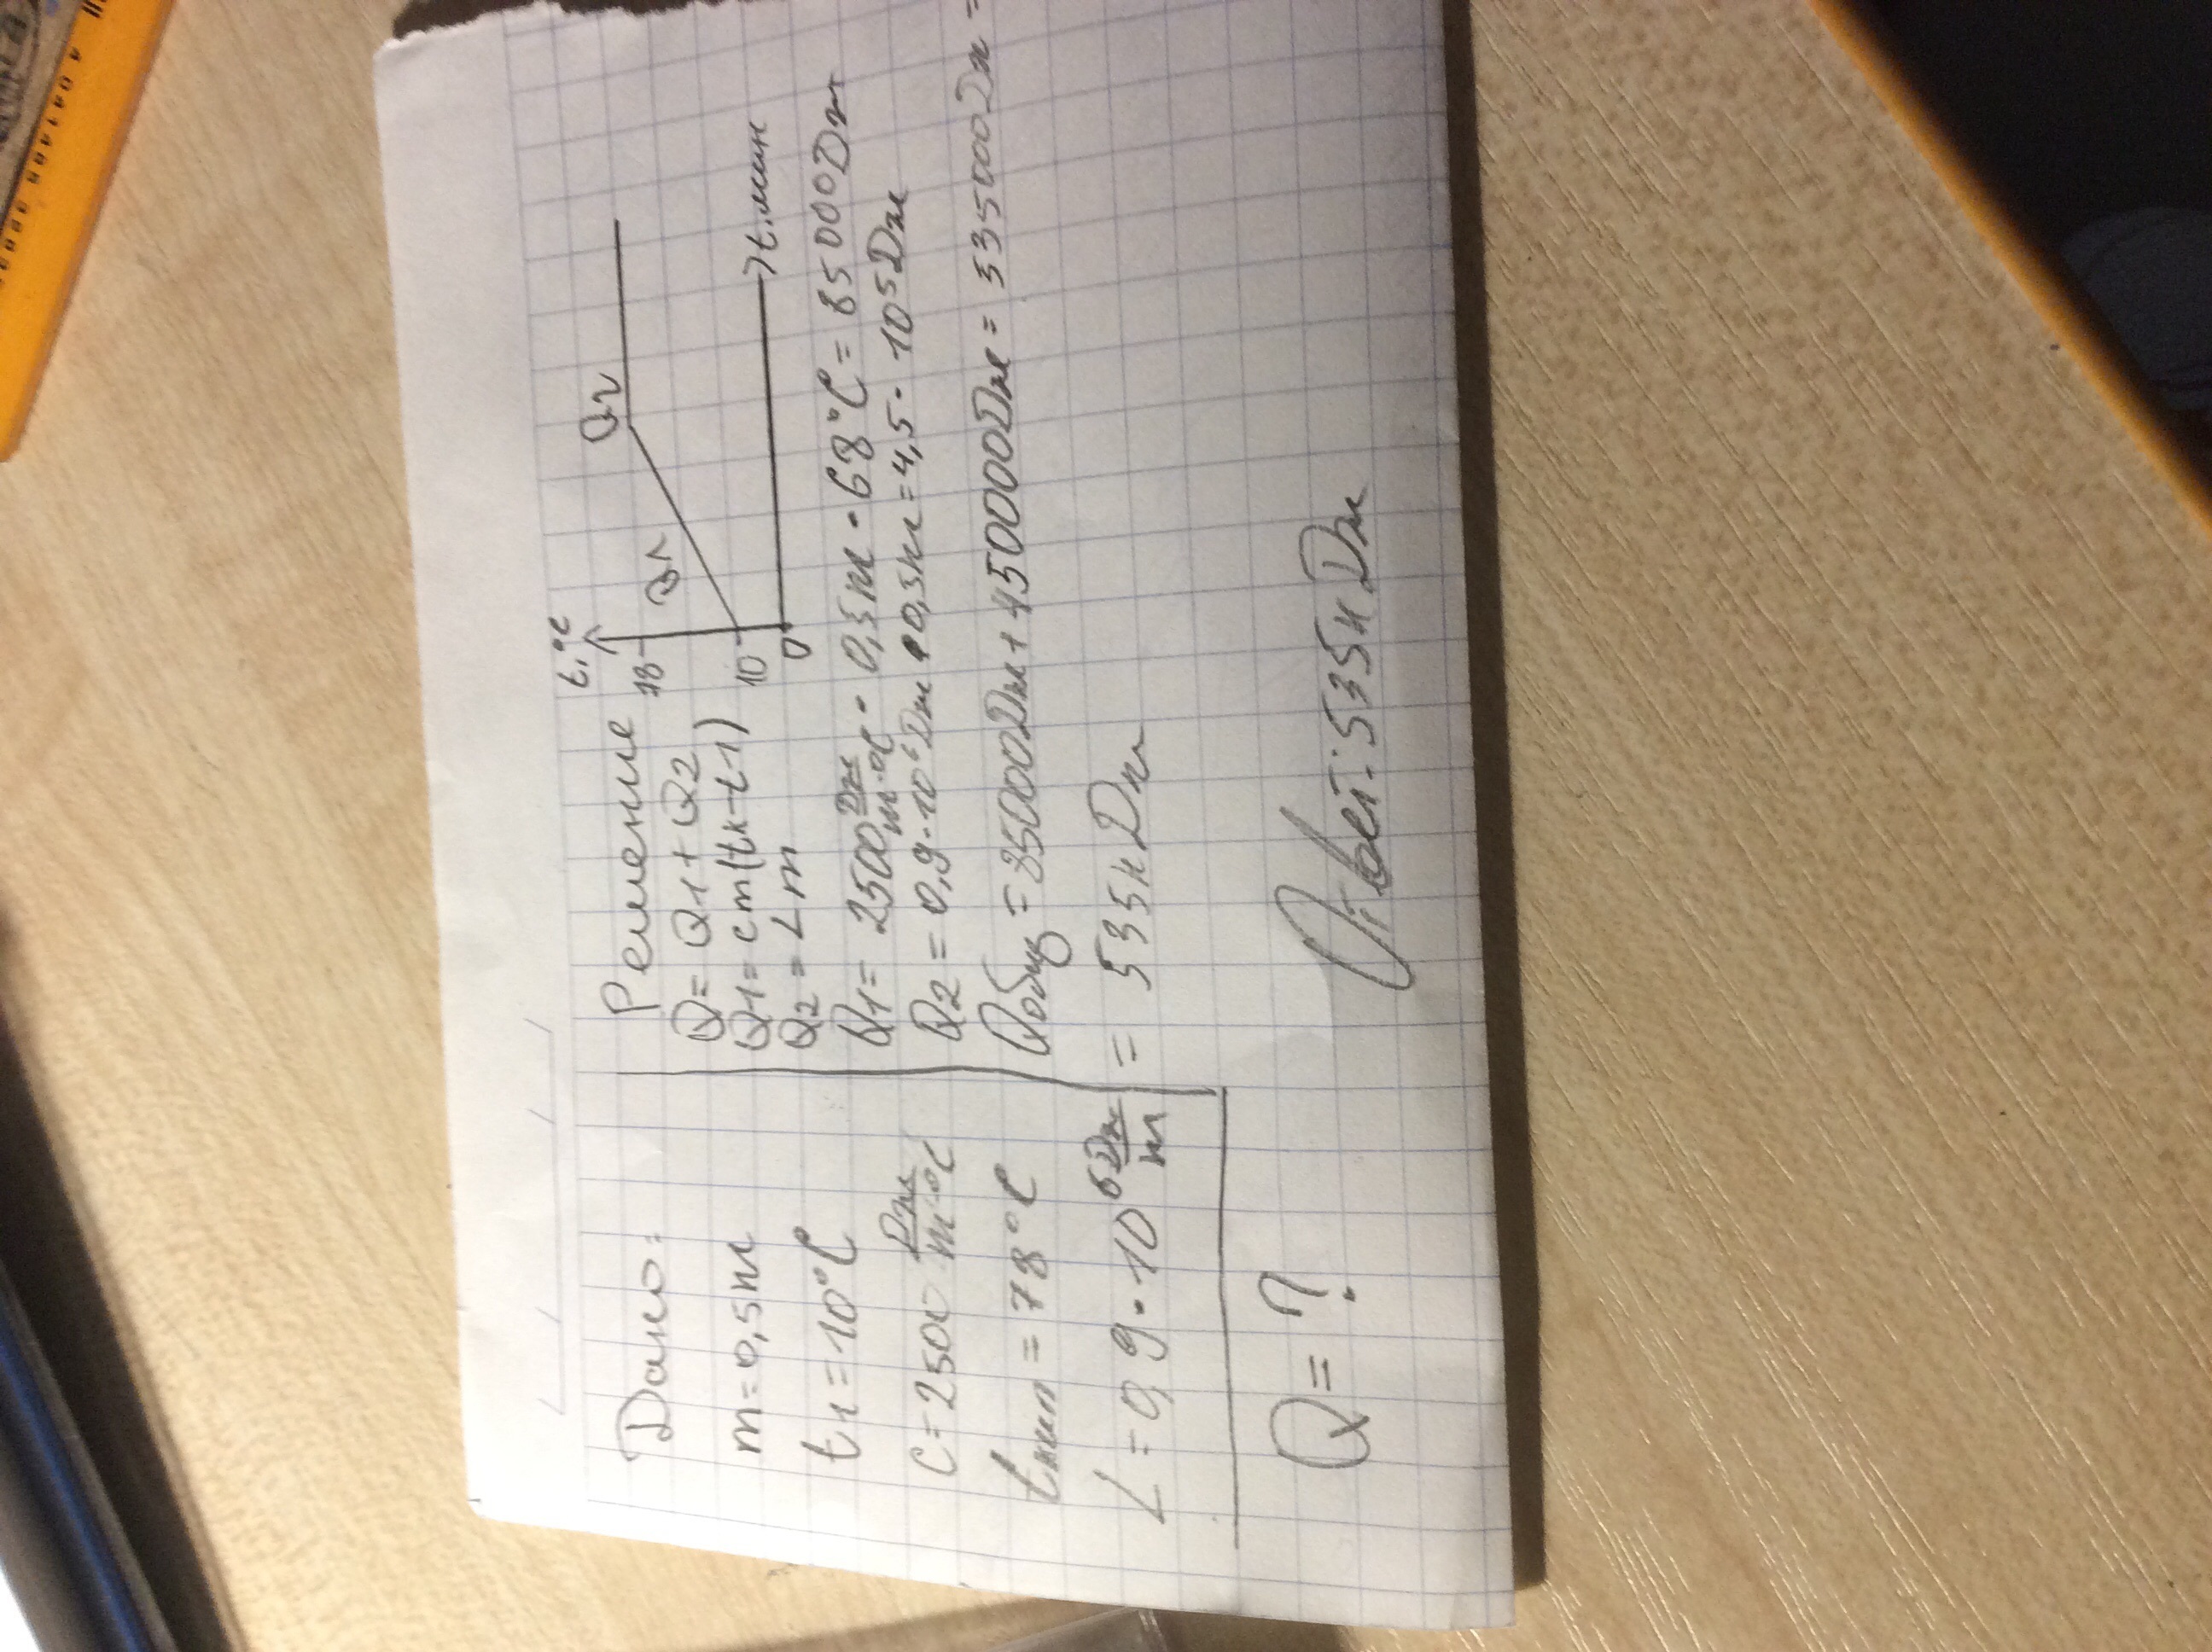 Дано:
m=0,5кг
t1=10°C
c=2500 Дж/кг°C
tкип=78°C
L=0,9·10⁶ Дж/кг
Q=?
Решение
Q=Q1+Q2
Q1=cm(tк-t1)
Q2=Lm
t,°C
78
10
0
Q1
Q2
t,мин
Q1=2500 Дж/кг·°C · 0,5кг·68°C=85000Дж
Q2=0,9·10⁶Дж·0,5кг=4,5·10⁵Дж
Qобщ=85000Дж+450000Дж=535000Дж=
=535кДж
Ответ:535кДж